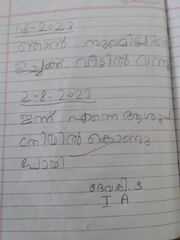 1-8-2023
ഞാൻ സുഖമില്ലാ
ഉച്ചക്ക് വീട്ടിൽ വന്ന
2-8-2023
ഇന്ന് എന്നെ ആശുപ
ത്രിയിൽ കൊണ്ടു
പോയി
ദേവകി. S
I A